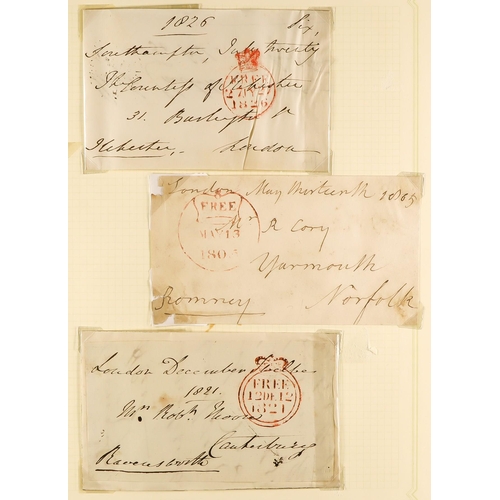 1826
Six,
Southampton, July twenty
The Countess of Ilchester
31. Burlington St
Ilchester,- London
FREE
1826
London May thirteenth 1805
Mr R Cory
Yarmouth
Romney Norfolk
FREE
MAY 13
180
London December Twelve
1821.
Mrs Robt
Canterbury
Ravensworth
FREE
12 DE 12
1821